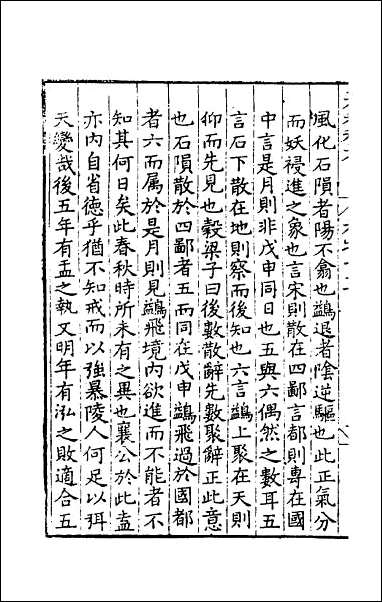 風化石隕者陽不翕也鷁退者陰逆驅也此正氣分
而妖祲進之象也言宋則散在四鄙言都則專在國
中言是月則非戊申同日也五與六偶然之數耳五
言石下散在地則察而後知也六言鷁上聚在天則
仰而先見也穀梁子曰後數散辭先數聚辭正此意
也石隕散於四鄙者五而同在戊申鷁飛過於國都
者六而属於是月則見鷁飛境内欲進而不能者不
知其何日矣此春秋時所未有之異也襄公於此盍
亦内自省徳乎猶不知戒而以強暴陵人何足以弭
天變哉後五年有盂之執又明年有泓之敗適合五